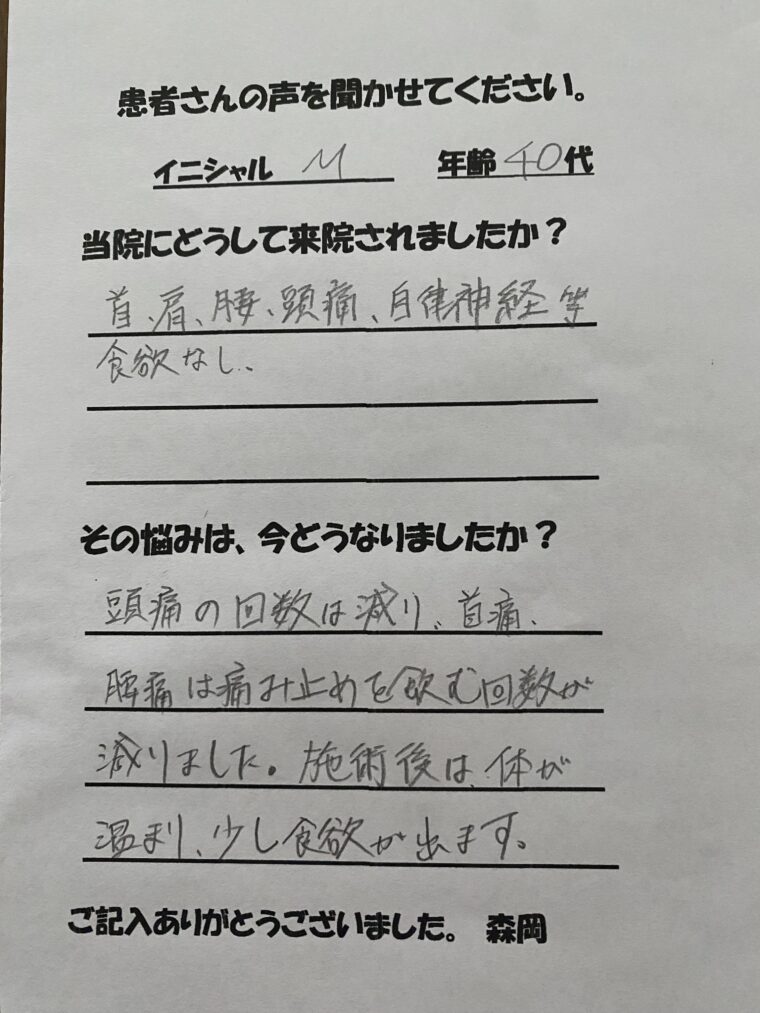 患者さんの声を聞かせてください。
イニシャル M 年齢 40代
当院にどうして来院されましたか？
首、肩、腰、頭痛、自律神経等
食欲なし、
その悩みは、今どうなりましたか？
頭痛の回数は減り、首痛、
腰痛は痛み止めを飲む回数が
減りました。施術後は、体が
温まり、少し食欲が出ます。
ご記入ありがとうございました。 森岡